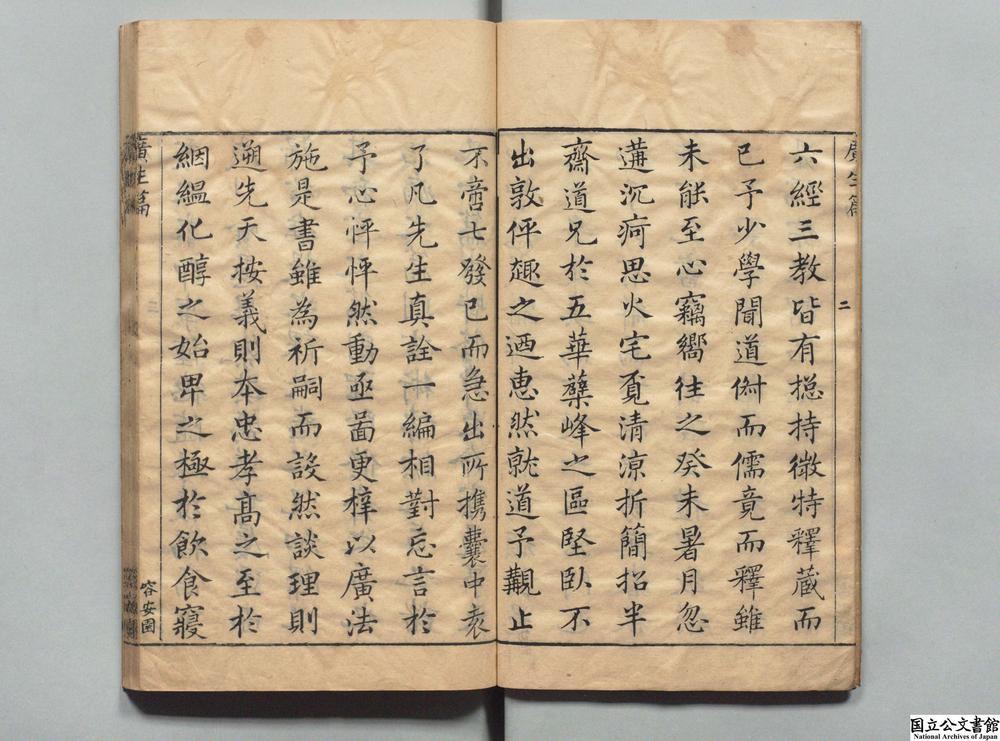 廣生篇
二
六經三教皆有揔持微特釋蔵而
已予少學聞道㣲而儒竟而釋雖
未能至心竊嚮往之癸未暑月忽
遘沉疴思火宅覔清涼折簡招半
齋道兄於五華蘖峰之區堅臥不
出敦伻趣之迺恵然就道予覯止
不啻七發已而急出所攜囊中袁
了凡先生真詮一編相對忘言於
予心怦怦然動亟啚更梓以廣法
施是書雖為祈嗣而設然談理則
遡先天按義則本忠孝髙之至於
絪緼化醇之始卑之極於飲食寢
廣生篇
容安園
国立公文書館
National Archives of Japan